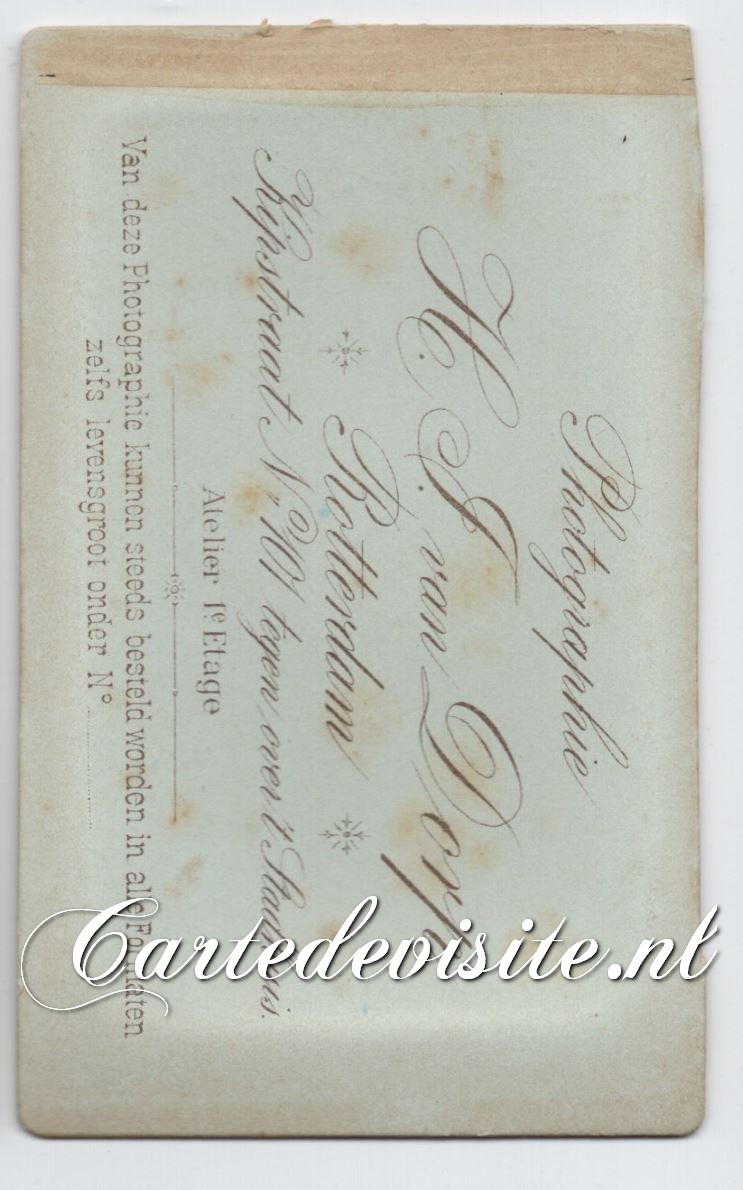 Photographie
H. J. van Dorp
Rotterdam
Kipstraat No. 101 tegen over 't Stadhuis.
Atelier 1e. Etage
Van deze Photographie kunnen steeds besteld worden in alle Formaten
zelfs levensgroot onder No
Cartedevisite.nl